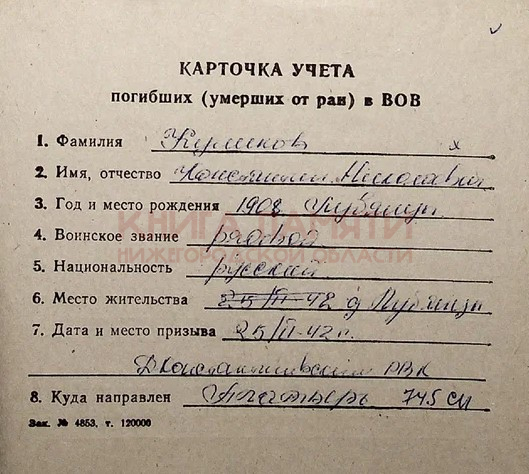 КАРТОЧКА УЧЕТА
погибших (умерших от ран) в ВОВ
1. Фамилия Куликов х
2. Имя, отчество Константин Николаевич
3. Год и место рождения 1908
КНИГА ПАМЯТИ
4. Воинское звание рядовой
НИЖЕГОРОДСКОЙ ОБЛАСТИ
5. Национальность русский
6. Место жительства 25/II-42 д
7. Дата и место призыва 25/II-42 г.
Д Константиновский РВК
8. Куда направлен 745 СП
Зак. № 4853. т. 120000